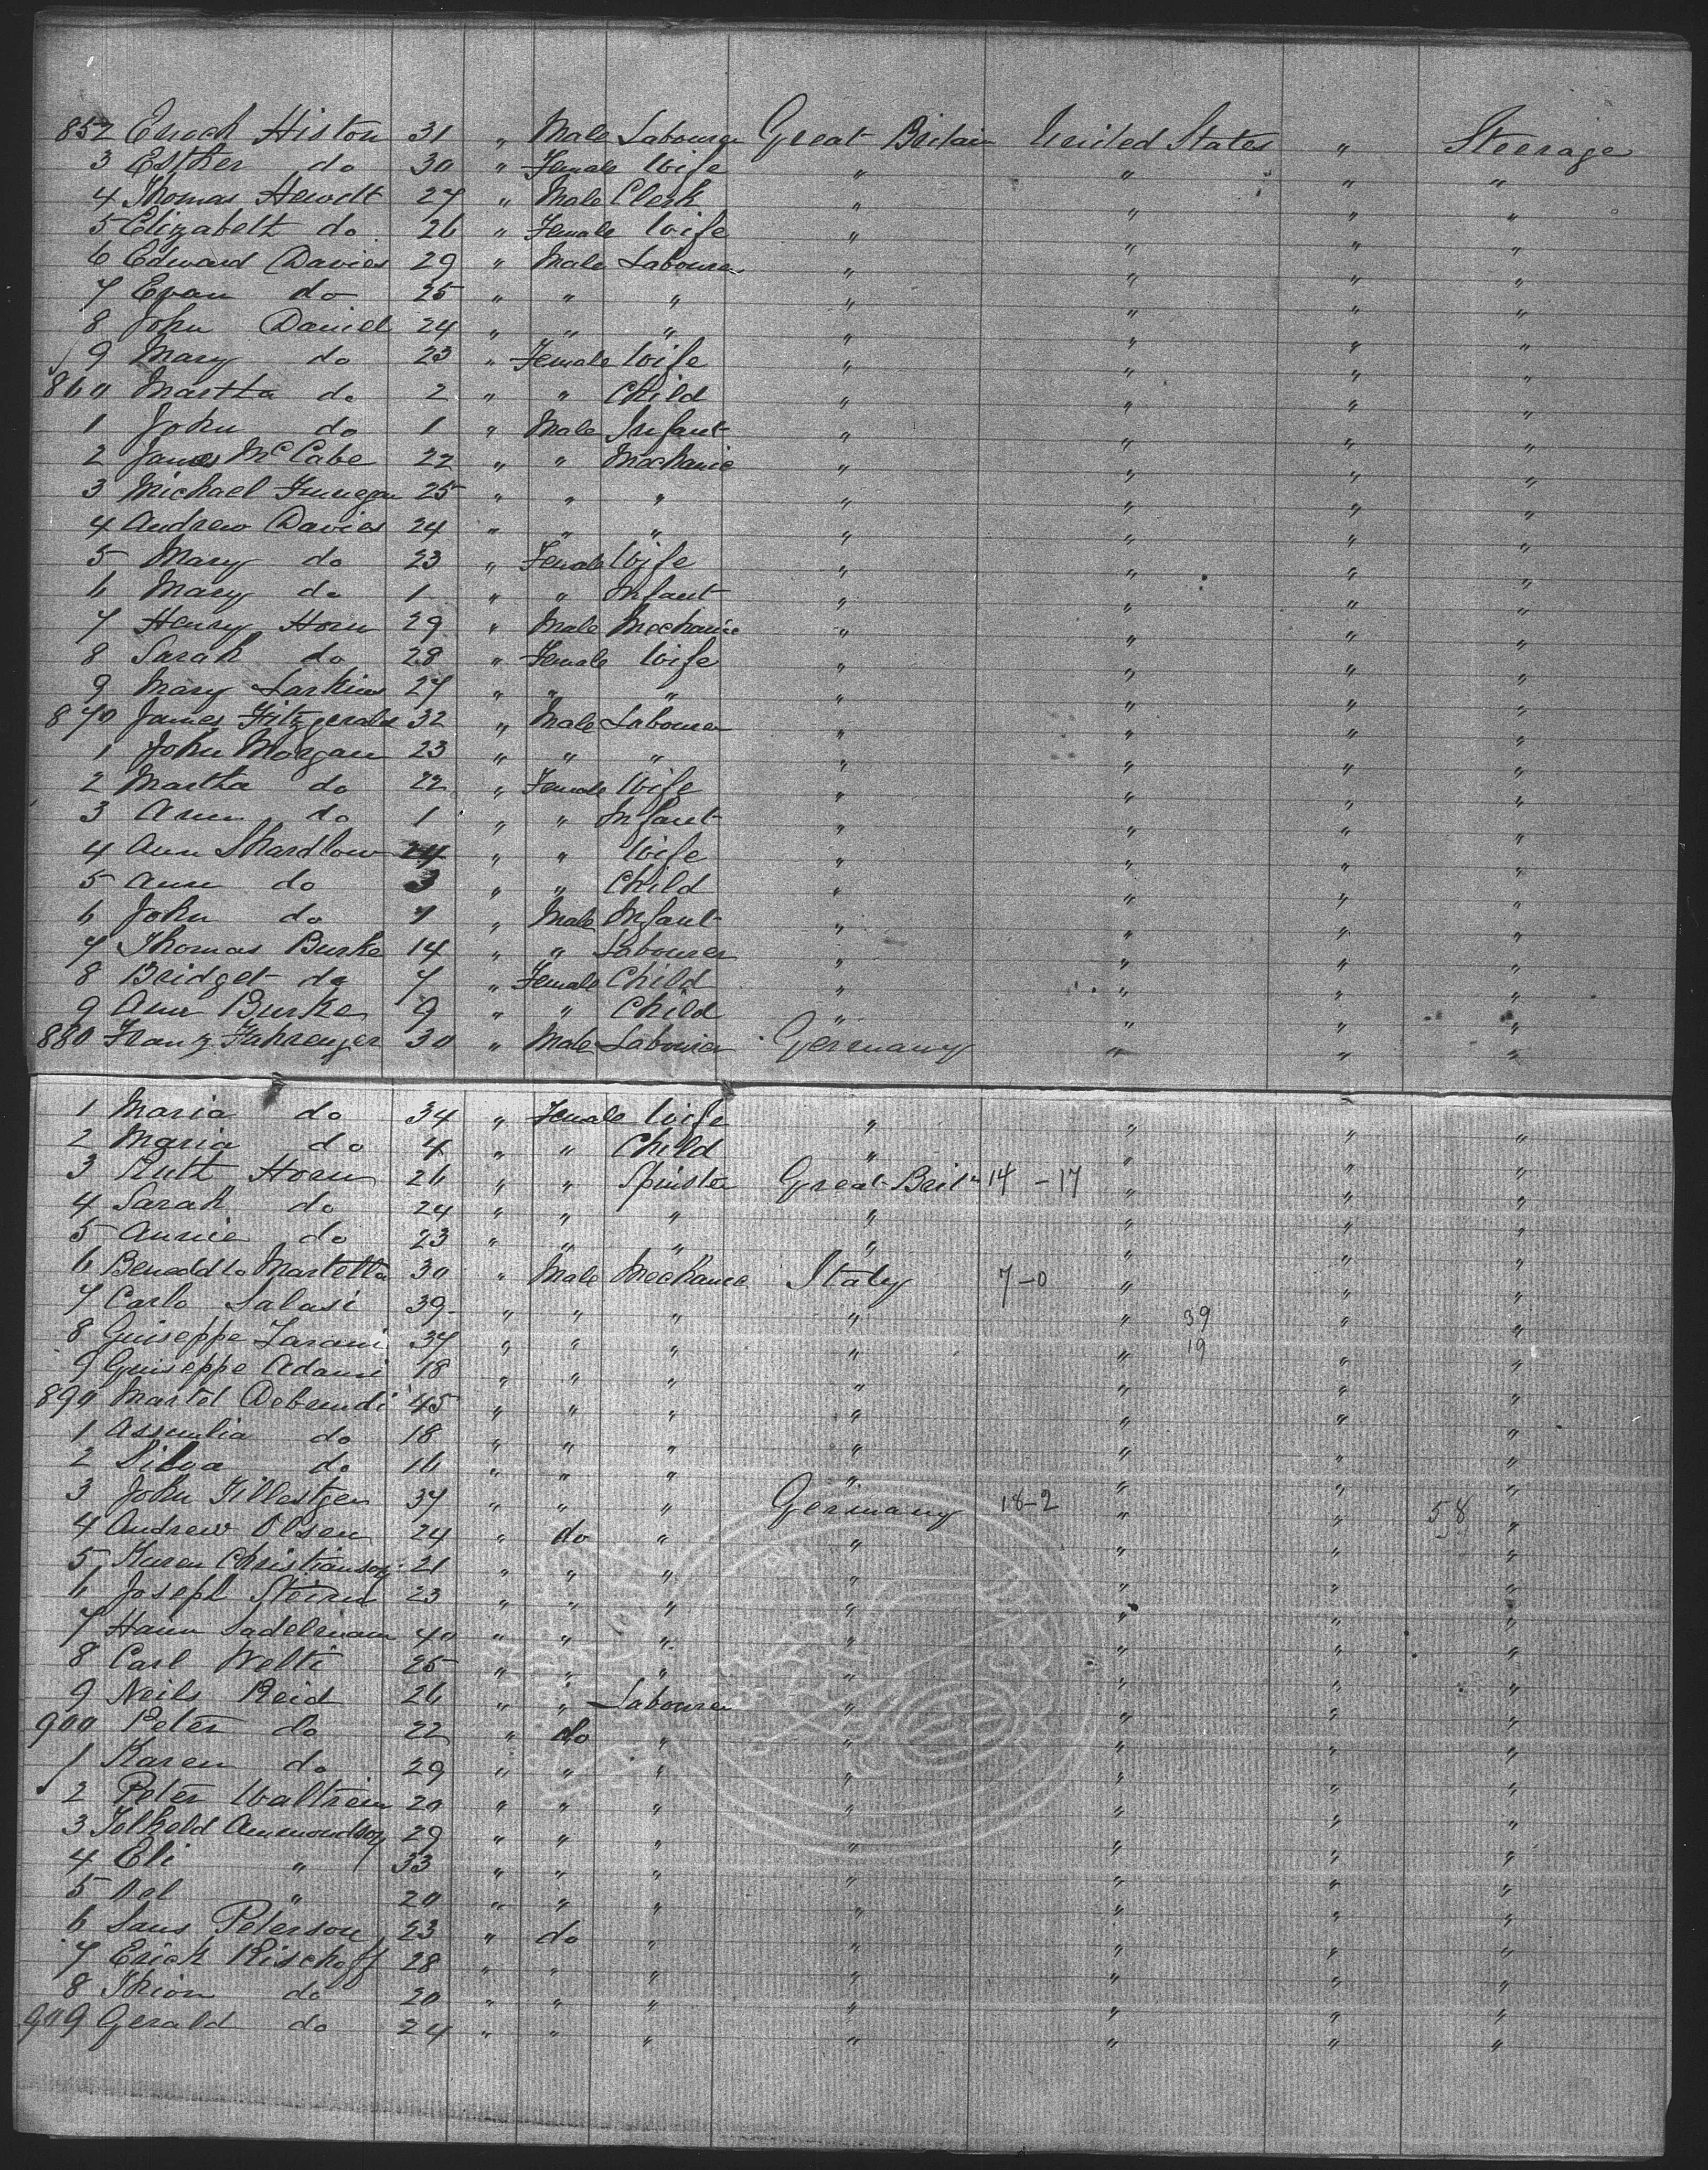 852 Enoch Histon 31 " Male Labourer Great Britain United States " Steerage
3 Esther do 30 " Female Wife " " " "
4 Thomas Hewitt 27 " Male Clerk " " " "
5 Elizabeth do 26 " Female Wife " " " "
6 Edward Davies 29 " Male Labourer " " " "
7 Evan do 25 " " " " " " "
8 John Daniel 24 " " " " " " "
9 Mary do 23 " Female Wife " " " "
860 Martha do 2 " " Child " " " "
1 John do 1 " Male Infant " " " "
2 James McCabe 22 " " Mechanic " " " "
3 Michael Finnegan 25 " " " " " " "
4 Andrew Davies 24 " " " " " " "
5 Mary do 23 " Female Wife " " " "
6 Mary do 1 " " Infant " " " "
7 Henry Horn 29 " Male Mechanic " " " "
8 Sarah do 28 " Female Wife " " " "
9 Mary Larkins 27 " " " " " " "
870 James Fitzgerald 32 " Male Labourer " " " "
1 John Morgan 23 " " " " " " "
2 Martha do 22 " Female Wife " " " "
3 Ann do 1 " " Infant " " " "
4 Ann Shardlow 24 " " Wife " " " "
5 Ann do 3 " " Child " " " "
6 John do 1 " Male Infant " " " "
7 Thomas Burke 14 " " Labourer " " " "
8 Bridget do 7 " Female Child " " " "
9 Ann Burke 9 " " Child " " " "
880 Franz Fahrenger 30 " Male Labourer Germany " " "
1 Maria do 34 " Female Wife " " " "
2 Maria do 4 " " Child " " " "
3 Ruth Horn 26 " " Spinster Great Brit'n 14-17 " " "
4 Sarah do 24 " " " " " " "
5 Annie do 23 " " " " " " "
6 Martella 30 " Male Mechanic Italy 7-0 " " "
7 Carlo Salasi 39 " " " " " 39 " "
8 Guiseppe Zarani 37 " " " " " 19 " "
9 Guiseppe Adami 18 " " " " " " "
890 Martel 45 " " " " " " "
1 do 18 " " " " " " "
2 Silva do 16 " " " " " " "
3 John 37 " " " Germany 18-2 " " 58 "
4 Andrew Olsen 24 " do " " " " "
5 Karen Christianson 21 " " " " " " "
6 Joseph 23 " " " " " " "
7 40 " " " " " " "
8 Carl Welti 25 " " " " " " "
9 Neils Reid 26 " " Labourer " " " "
900 Peter do 22 " do " " " " "
1 Karen do 29 " " " " " " "
2 Peter Waltrein 20 " " " " " " "
3 Ammondson 29 " " " " " " "
4 Eli " 33 " " " " " " "
5 " 20 " " " " " " "
6 Peterson 23 " do " " " " "
7 Erick Rischoff 28 " " " " " " "
8 do 20 " " " " " " "
909 Gerald do 24 " " " " " " "